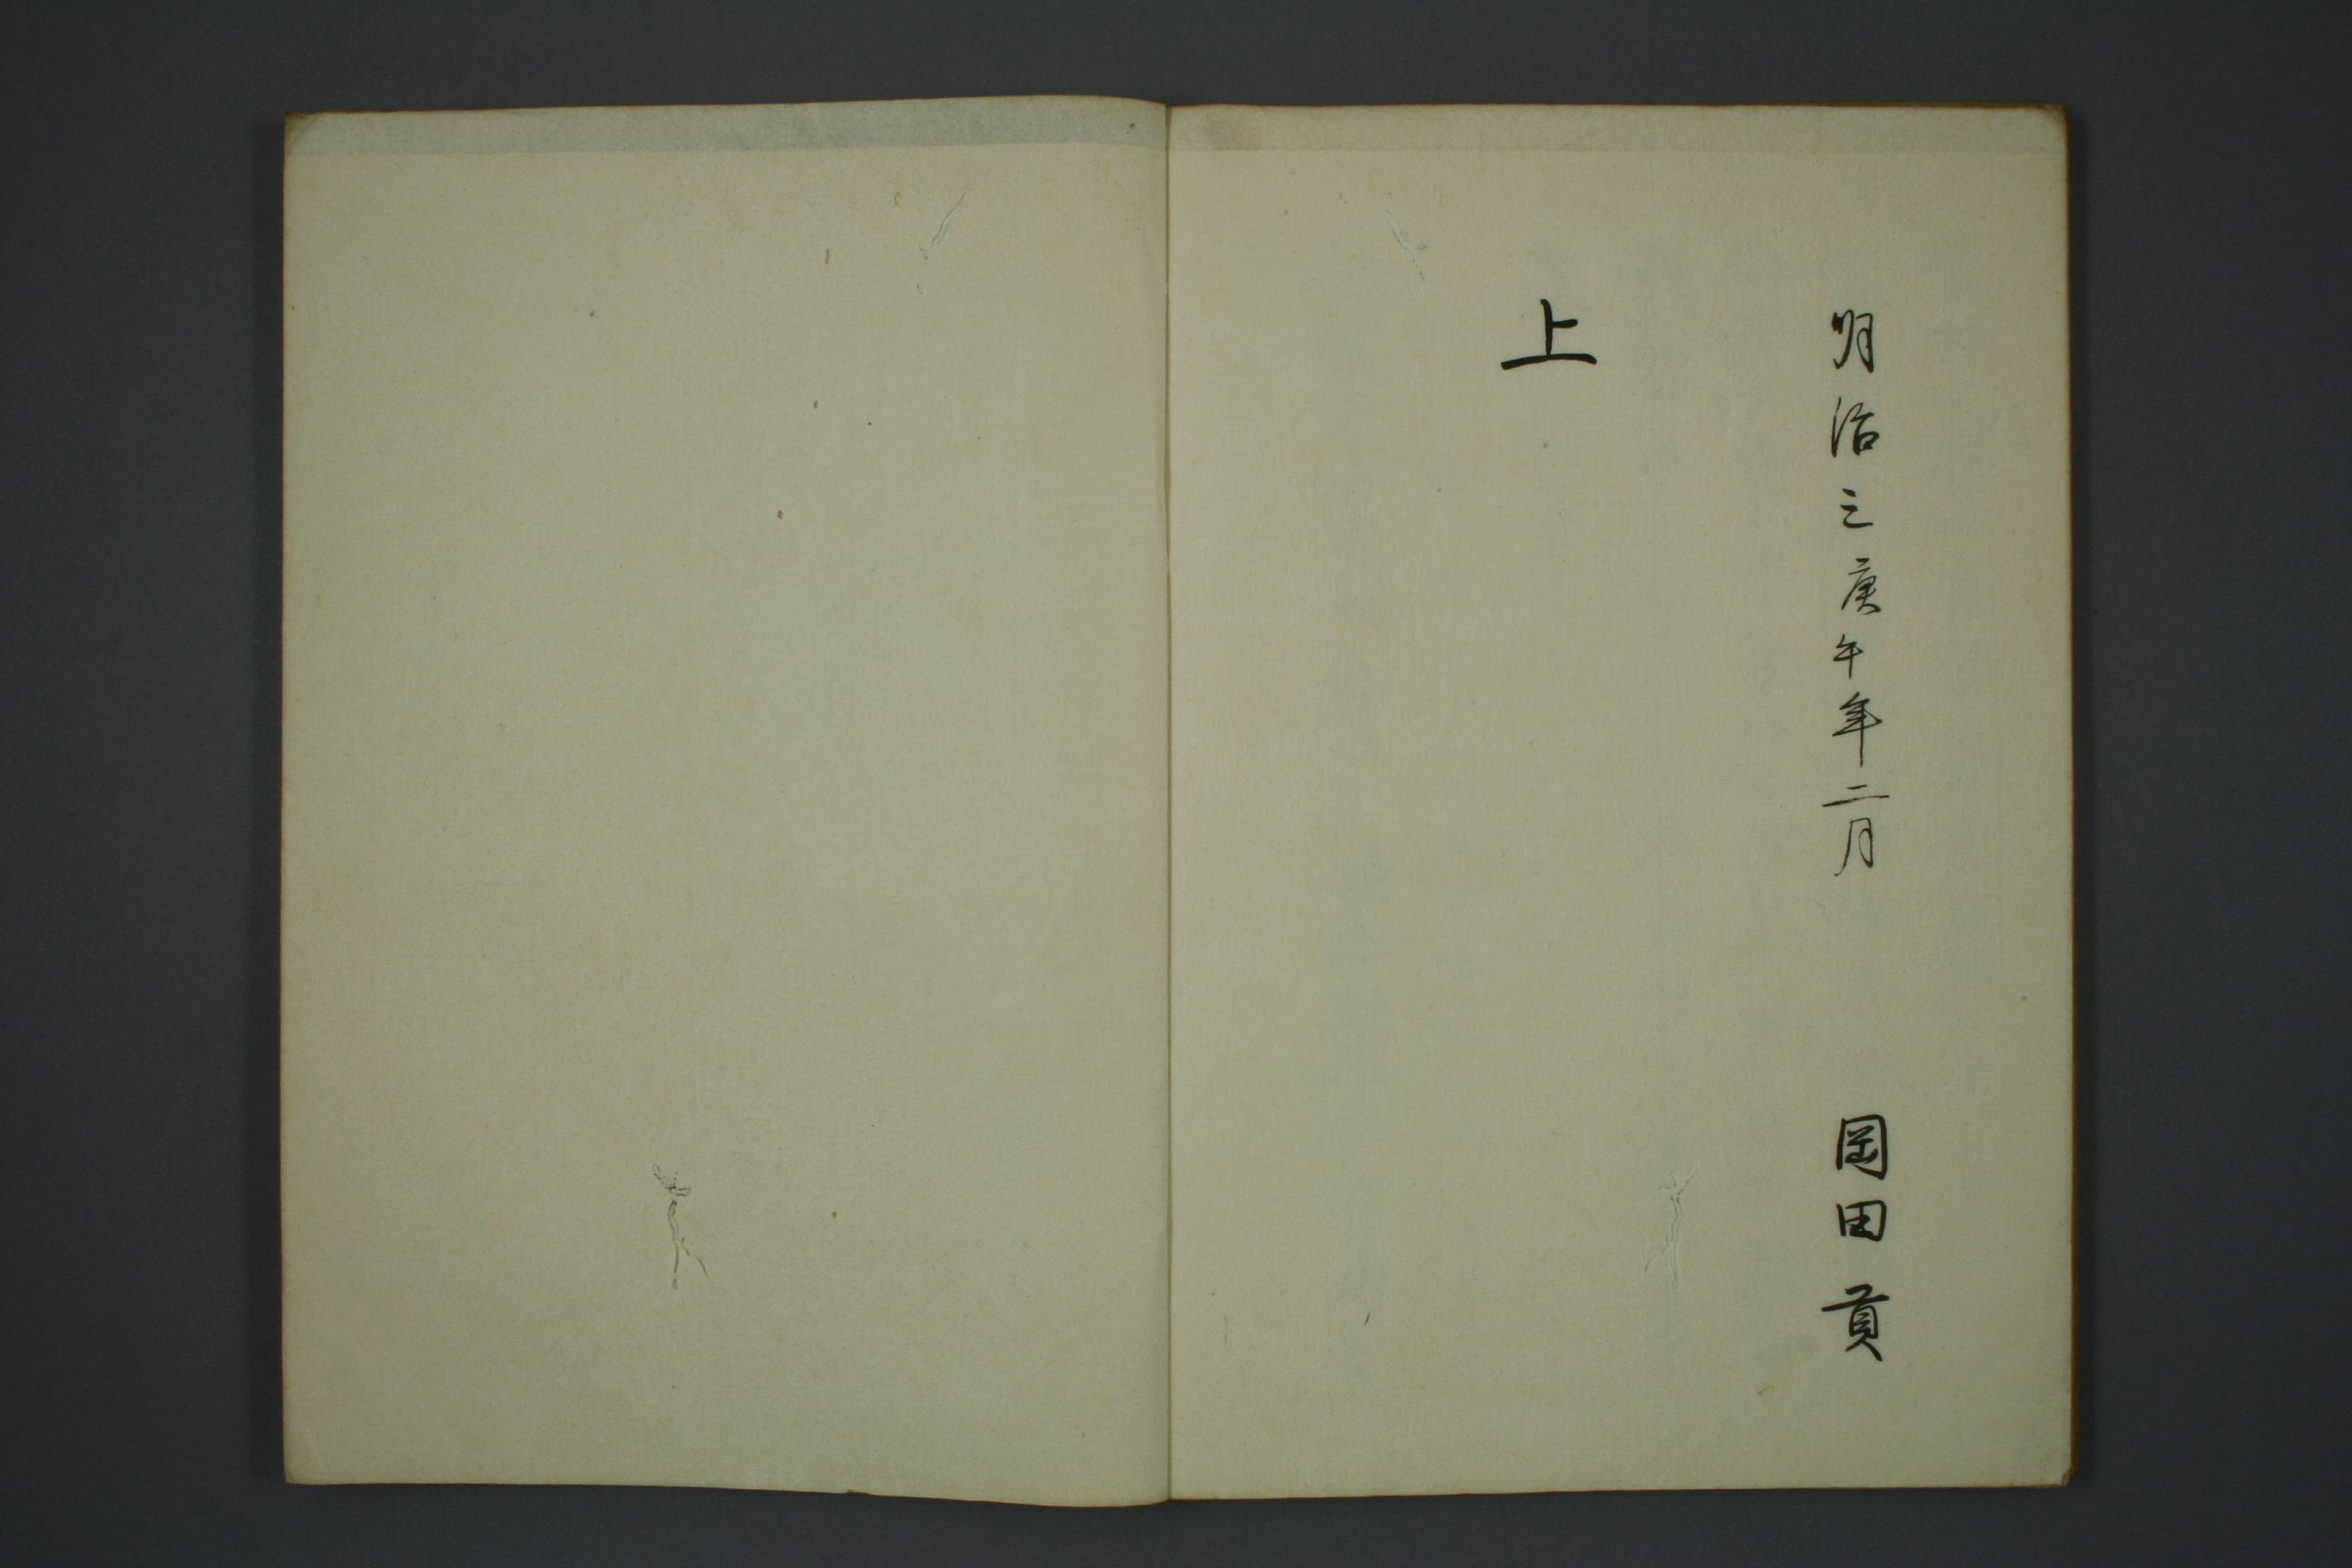 明治三庚午年二月　岡田貢
上